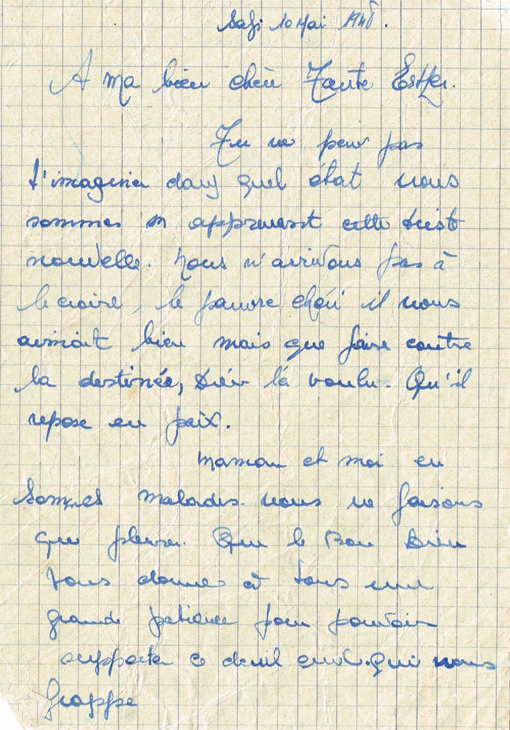 Safi 10 Mai 1948.
A ma bien chère Tante Esther.
Tu ne peux pas
t'imaginer dans quel état nous
sommes en apprenant cette triste
nouvelle. nous n'arrivons pas à
le croire, le pauvre chéri il nous
aimait bien mais que faire contre
la destinée, Dieu l'a voulu. Qu'il
repose en paix.
Maman et moi en
sommes malades. nous ne faisons
que pleurer. Que le Bon Dieu
vous donne à tous une
grande patience pour pouvoir
supporter ce deuil qui nous
frappe